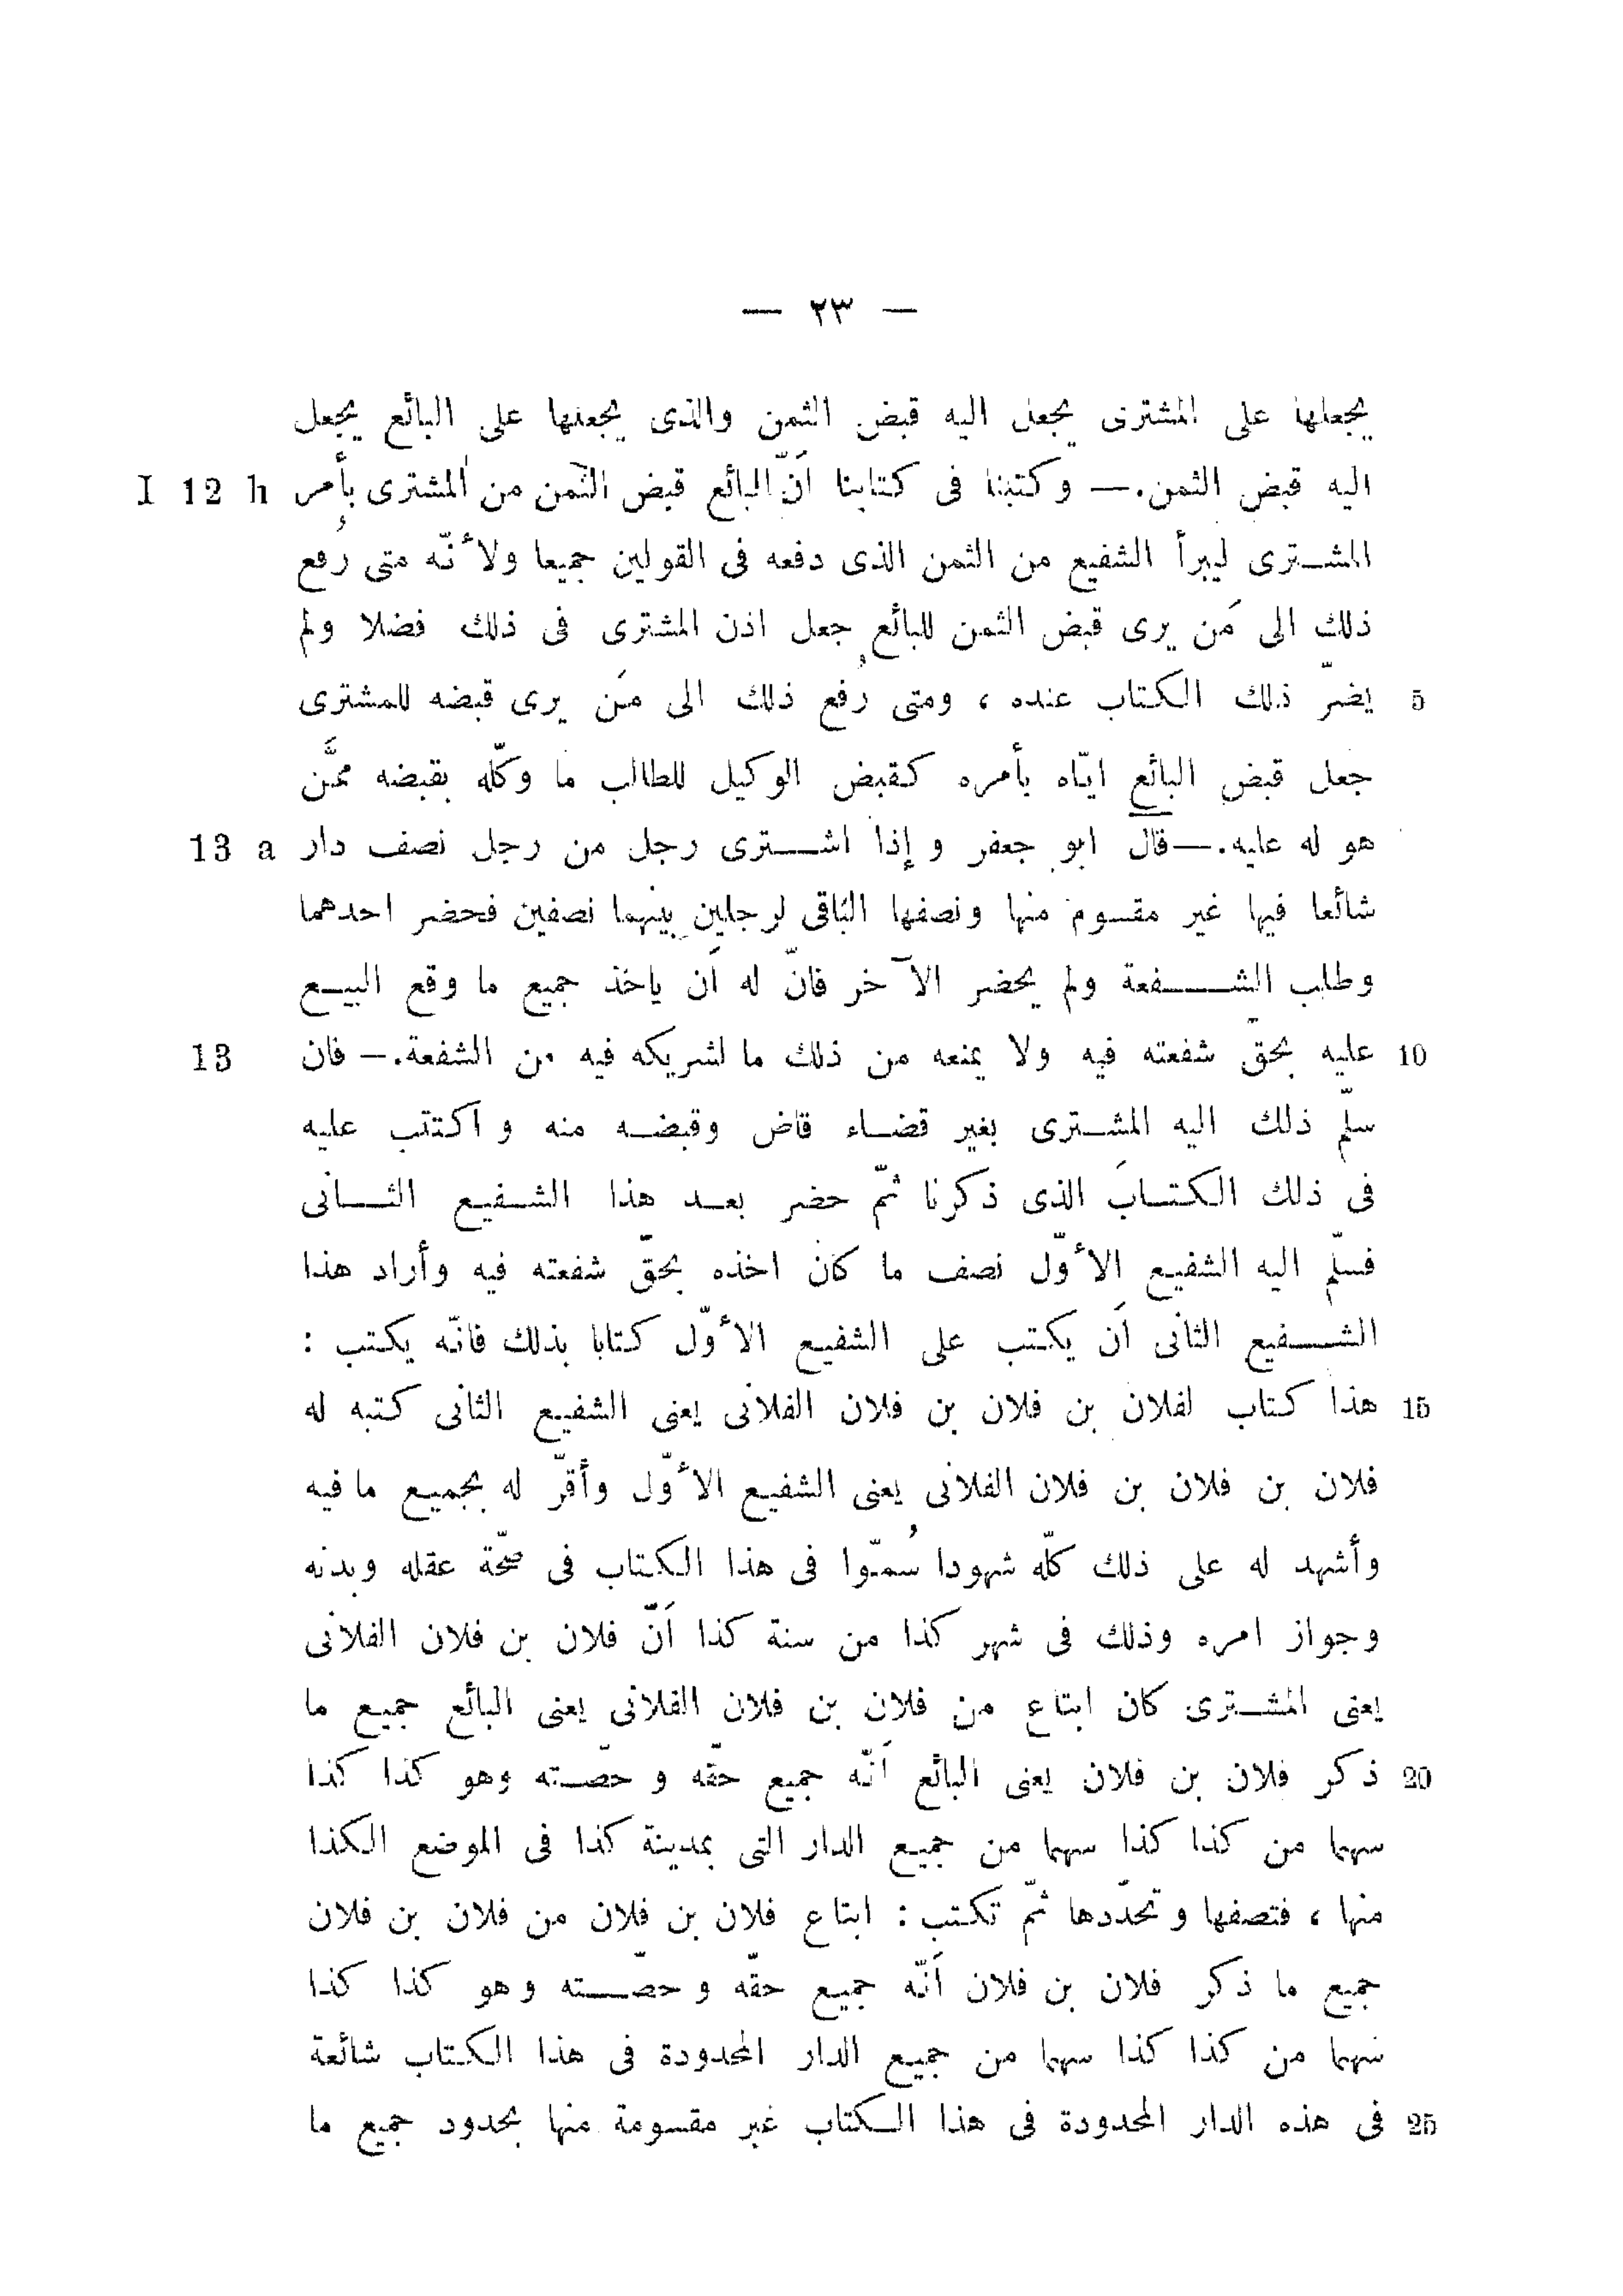 — ٢٣ —
يجعلها على المشترى يجعل اليه قبض الثمن والذى يجعلها على البائع يجعل
اليه قبض الثمن.— وكتبنا فى كتابنا اَنّ البائع قبض الثمن من المشترى بأمر I 12 h
المشترى ليبرأ الشفيع من الثمن الذى دفعه فى القولين جميعا ولأنّه متى رُفع
ذلك الى مَن يرى قبض الثمن للبائع جعل اذن المشترى فى ذلك فضلا ولم
5 يضرّ ذلك الكتاب عنده ، ومتى رُفع ذلك الى مَن يرى قبضه للمشترى
جعل قبض البائع ايّاه بأمره كقبض الوكيل للطالب ما وكّله بقبضه ممَّن
هو له عليه.—قال ابو جعفر وإذا اشترى رجل من رجل نصف دار 13 a
شائعا فيها غير مقسوم منها ونصفها الباقى لرجلين بينهما نصفين فحضر احدهما
وطلب الشفعة ولم يحضر الآخر فانّ له اَن ياخذ جميع ما وقع البيع
10 عليه بحقّ شفعته فيه ولا يمنعه من ذلك ما لشريكه فيه من الشفعة.— فان 13
سلّم ذلك اليه المشترى بغير قضاء قاض وقبضه منه واكتتب عليه
فى ذلك الكتابَ الذى ذكرنا ثمّ حضر بعد هذا الشفيع الثانى
فسلّم اليه الشفيع الأوّل نصف ما كان اخذه بحقّ شفعته فيه وأراد هذا
الشفيع الثانى اَن يكتب على الشفيع الأوّل كتابا بذلك فانّه يكتب :
15 هذا كتاب لفلان بن فلان بن فلان الفلانى يعنى الشفيع الثانى كتبه له
فلان بن فلان بن فلان الفلانى يعنى الشفيع الأوّل وأقرّ له بجميع ما فيه
وأشهد له على ذلك كلّه شهودا سُمّوا فى هذا الكتاب فى صحّة عقله وبدنه
وجواز امره وذلك فى شهر كذا من سنة كذا اَنّ فلان بن فلان الفلانى
يعنى المشترى كان ابتاع من فلان بن فلان الفلانى يعنى البائع جميع ما
20 ذكر فلان بن فلان يعنى البائع اَنّه جميع حقّه وحصّته وهو كذا كذا
سهما من كذا كذا سهما من جميع الدار التى بمدينة كذا فى الموضع الكذا
منها ، فتصفها وتحدّدها ثمّ تكتب : ابتاع فلان بن فلان من فلان بن فلان
جميع ما ذكر فلان بن فلان اَنّه جميع حقّه وحصّته وهو كذا كذا
سهما من كذا كذا سهما من جميع الدار المحدودة فى هذا الكتاب شائعة
25 فى هذه الدار المحدودة فى هذا الكتاب غير مقسومة منها بحدود جميع ما